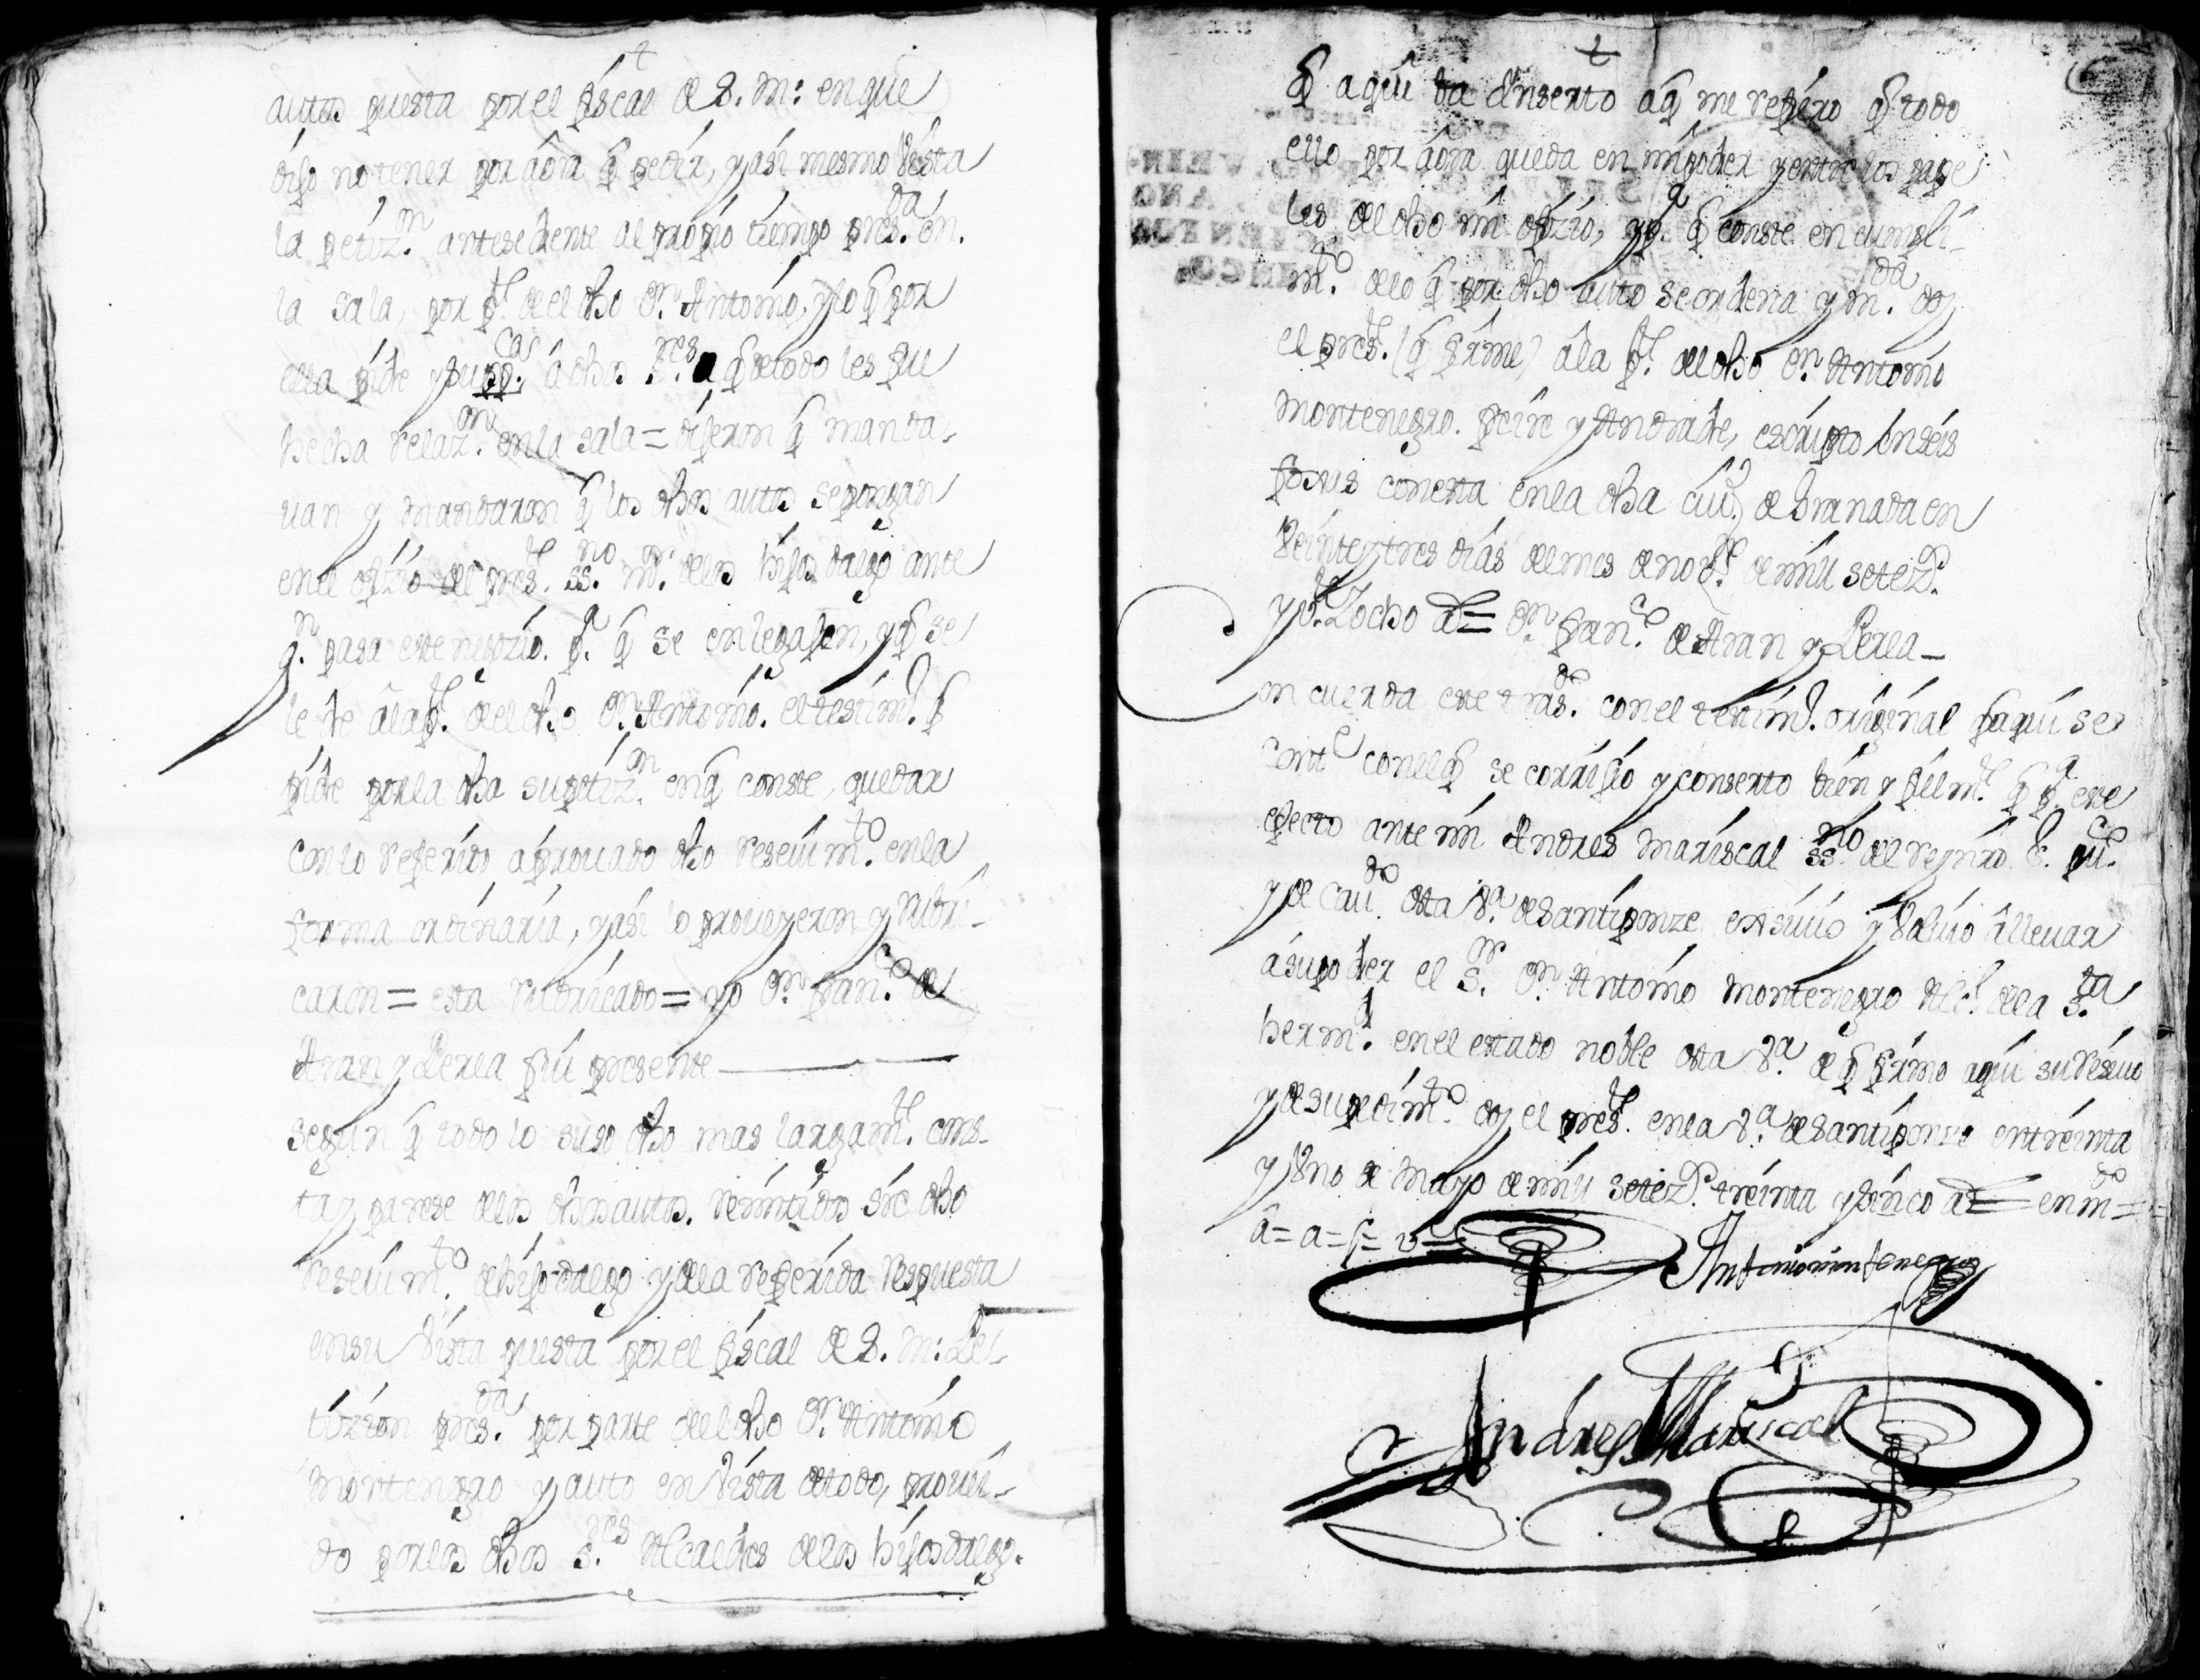 autos puesta por el fiscal de S. M: en que
dijo no tener por aôra q̃ pedir, y asi mesmo vista
la petiz.on antesedente al propio tiempo pres.da en
la sala, por p.te de el dho D.n Antonio, y lo q̃ por
ella pide y supp.ca â dhos s.res q̃ de todo les fue
hecha relaz.on en la sala = dijeron q̃ manda-
uan y mandaron q̃ los dhos autos se pongan
en el ofizio del pres.te ss.no m.r de los hijos dalgo ante
q.n pasa este negozio. p.a q̃ se enlegajen, y q̃ se
le de â la p.te de el dho D.n Antonio. el testim.o q̃
pide por la dha su petiz.on en q̃ conste, quedar
con lo referido aprouado dho reseuim.to en la
forma ordinaria, y asi lo proueyeron y rubri-
caron = esta rubricado = yo D.n Fran.co de
Aran y Perea fui presente
segun q̃ todo lo suso dho mas largam.te cons-
ta y parese de los dhos autos. remitidos sre dho
reseuim.to de hijodalgo y de la referida respuesta
en su vista puesta por el fiscal de S. M: Pe-
tizion pres.da por parte de el dho D.n Antonio
Montenegro y auto en vista de todo, proueî-
do por los dhos s.res Alcaldes de los hijosdalgo.
q̃ aquî va ynserto a q̃ me refiero q̃ todo
ello por aôra queda en mi poder y entre los pape
les de el dho mi ofizio, y p.a q̃ conste en cumpli-
m.to de lo q̃ por dho auto se ordena y m.da doy
el pres.te (q̃ firme) â la p.te de el dho D.n Antonio
Montenegro. freire y Andrade, escripto en seis
foxas con esta en la dha ciu.d de Granada en
veinte y tres dias del mes de nou.re de mill setez.s
y v.te y ocho a.s = D.n Fran.co de Aran y Perea –
Concuerda este tras.do con el testim.o original q̃ aqui se
cont.e con el q̃ se corrijio y conserto bien y fielm.te q̃ p.a este
efecto ante mi Andres Mariscal ss.no del rey nro S. pu.co
y de cau.do desta v.a de Santiponze exsiuio y voluio â lleuar
â su poder el S.or D.n Antonio Montenegro Alc.e de la S.ta
herm.d en el estado noble desta v.a de q̃ firmo aqui su resiuo
y de su pedim.to doy el pres.te en la v.a de Santiponze en treinta
y vno de Mayo de mill setez.s treinta y sinco a.s = en m.do =
â = a = f = v =
Antonio montenegro
Andres Mariscal